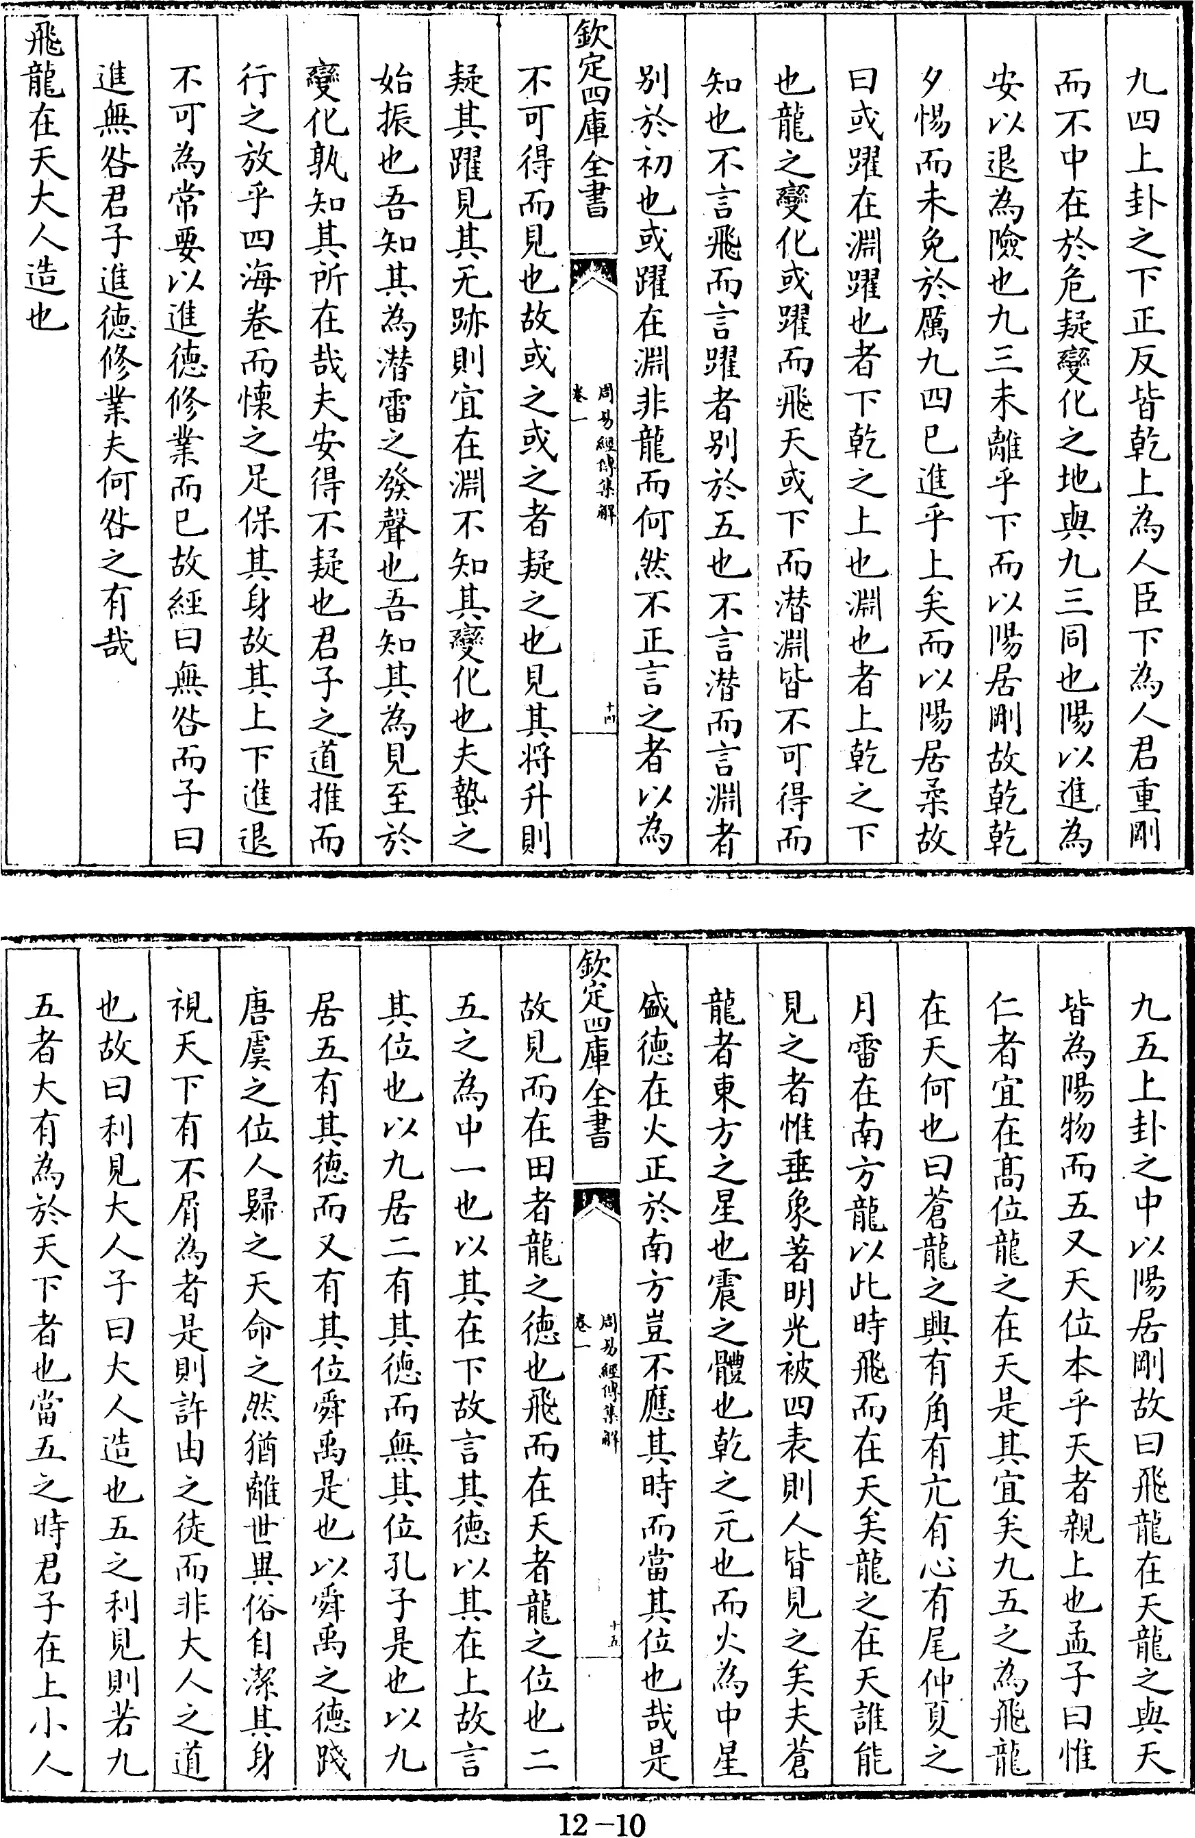 九四上卦之下正反皆乾上為人臣下為人君重剛
而不中在於危疑變化之地與九三同也陽以進為
安以退為險也九三未離乎下而以陽居剛故乾乾
夕惕而未免於厲九四已進乎上矣而以陽居柔故
曰或躍在淵躍也者下乾之上也淵也者上乾之下
也龍之變化或躍而飛天或下而潜淵皆不可得而
知也不言飛而言躍者别於五也不言潜而言淵者
别於初也或躍在淵非龍而何然不正言之者以為
欽定四庫全書
周易經傳集解
卷一
十四
不可得而見也故或之或之者疑之也見其将升則
疑其躍見其无跡則宜在淵不知其變化也夫蟄之
始振也吾知其為潜雷之發聲也吾知其為見至於
變化孰知其所在哉夫安得不疑也君子之道推而
行之放乎四海卷而懐之足保其身故其上下進退
不可為常要以進徳修業而已故經曰無咎而子曰
進無咎君子進徳修業夫何咎之有哉
飛龍在天大人造也
九五上卦之中以陽居剛故曰飛龍在天龍之與天
皆為陽物而五又天位本乎天者親上也孟子曰惟
仁者宜在髙位龍之在天是其宜矣九五之為飛龍
在天何也曰蒼龍之興有角有亢有心有尾仲夏之
月雷在南方龍以此時飛而在天矣龍之在天誰能
見之者惟垂象著明光被四表則人皆見之矣夫蒼
龍者東方之星也震之體也乾之元也而火為中星
盛徳在火正於南方豈不應其時而當其位也哉是
欽定四庫全書
周易經傳集解
卷一
十五
故見而在田者龍之徳也飛而在天者龍之位也二
五之為中一也以其在下故言其徳以其在上故言
其位也以九居二有其徳而無其位孔子是也以九
居五有其徳而又有其位舜禹是也以舜禹之徳踐
唐虞之位人歸之天命之然猶離世異俗自潔其身
視天下有不屑為者是則許由之徒而非大人之道
也故曰利見大人子曰大人造也五之利見則若九
五者大有為於天下者也當五之時君子在上小人
12-10